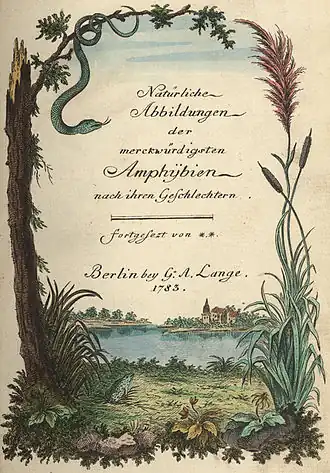 Natürliche
Abbildungen
der
merckwürdigsten
Amphÿbien
nach ihren Geschlechtern.
fortgesezt von *.*.
Berlin bey G. A. Lange.
1783.